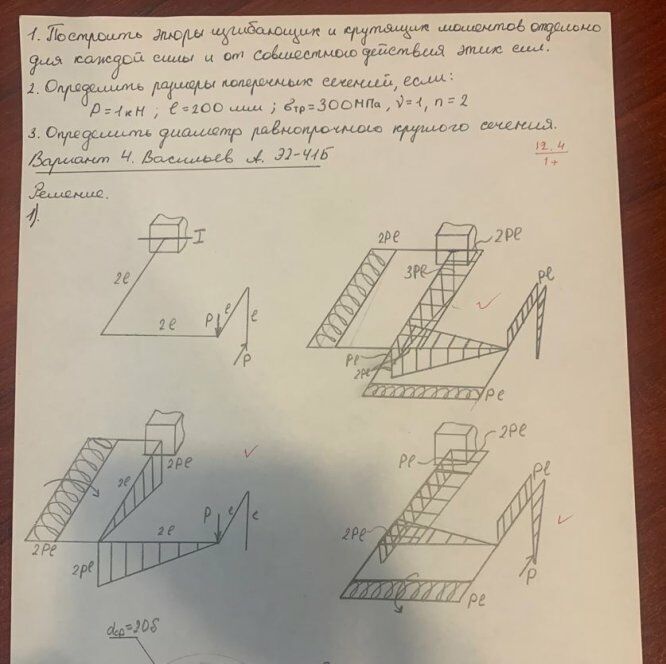 1. Построить эпюры изгибающих и крутящих моментов отдельно
для каждой силы и от совместного действия этих сил.
2. Определить размеры поперечных сечений, если:
P=1кН ; ℓ=200 мм ; σтр=300МПа, ν=1, n=2
3. Определить диаметр равнопрочного круглого сечения.
Вариант 4. Васильев А. Э2-41Б
12.4
1+
Решение.
1).
I
2ℓ
2ℓ
P
ℓ
ℓ
P
2Pℓ
2Pℓ
3Pℓ
Pℓ
Pℓ
2Pℓ
Pℓ
2Pℓ
2ℓ
2ℓ
P
ℓ
ℓ
2Pℓ
2Pℓ
2Pℓ
Pℓ
Pℓ
2Pℓ
P
Pℓ
dср=20δ